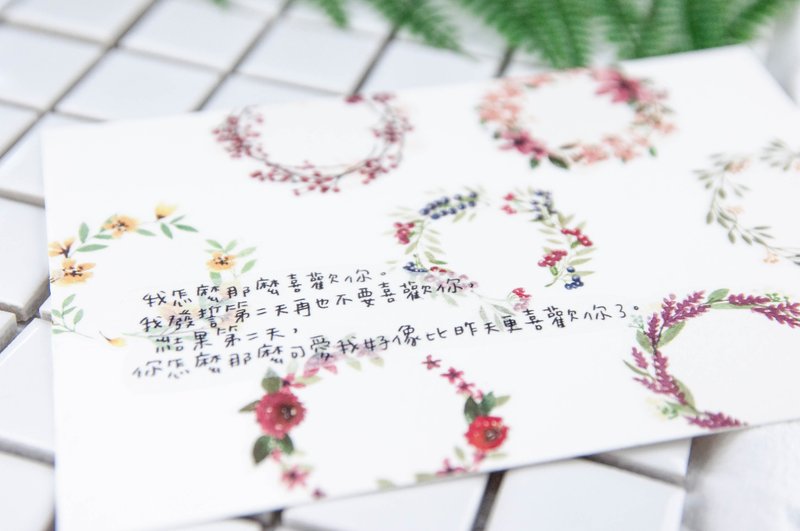 我怎麼那麼喜歡你。
我發誓第二天再也不要喜歡你,
結果第二天,
你怎麼那麼可愛我好像比昨天更喜歡你了。